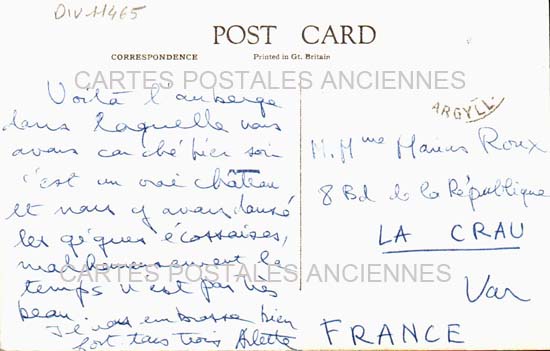 DIV 11465
POST CARD
CORRESPONDENCE
Printed in Gt. Britain
CARTES POSTALES ANCIENNES
ARGYLL.
Voilà l'auberge
dans laquelle nous
avons couché hier soir
c'est un vrai château
et nous y avons dansé
les gigues écossaises,
malheureusement le
temps n'est pas très
beau.
Je vous embrasse bien
fort tous trois Arlette
M. Mme Marius Roux
8 Bd de la République
LA CRAU
Var
FRANCE
CARTES POSTALES ANCIENNES